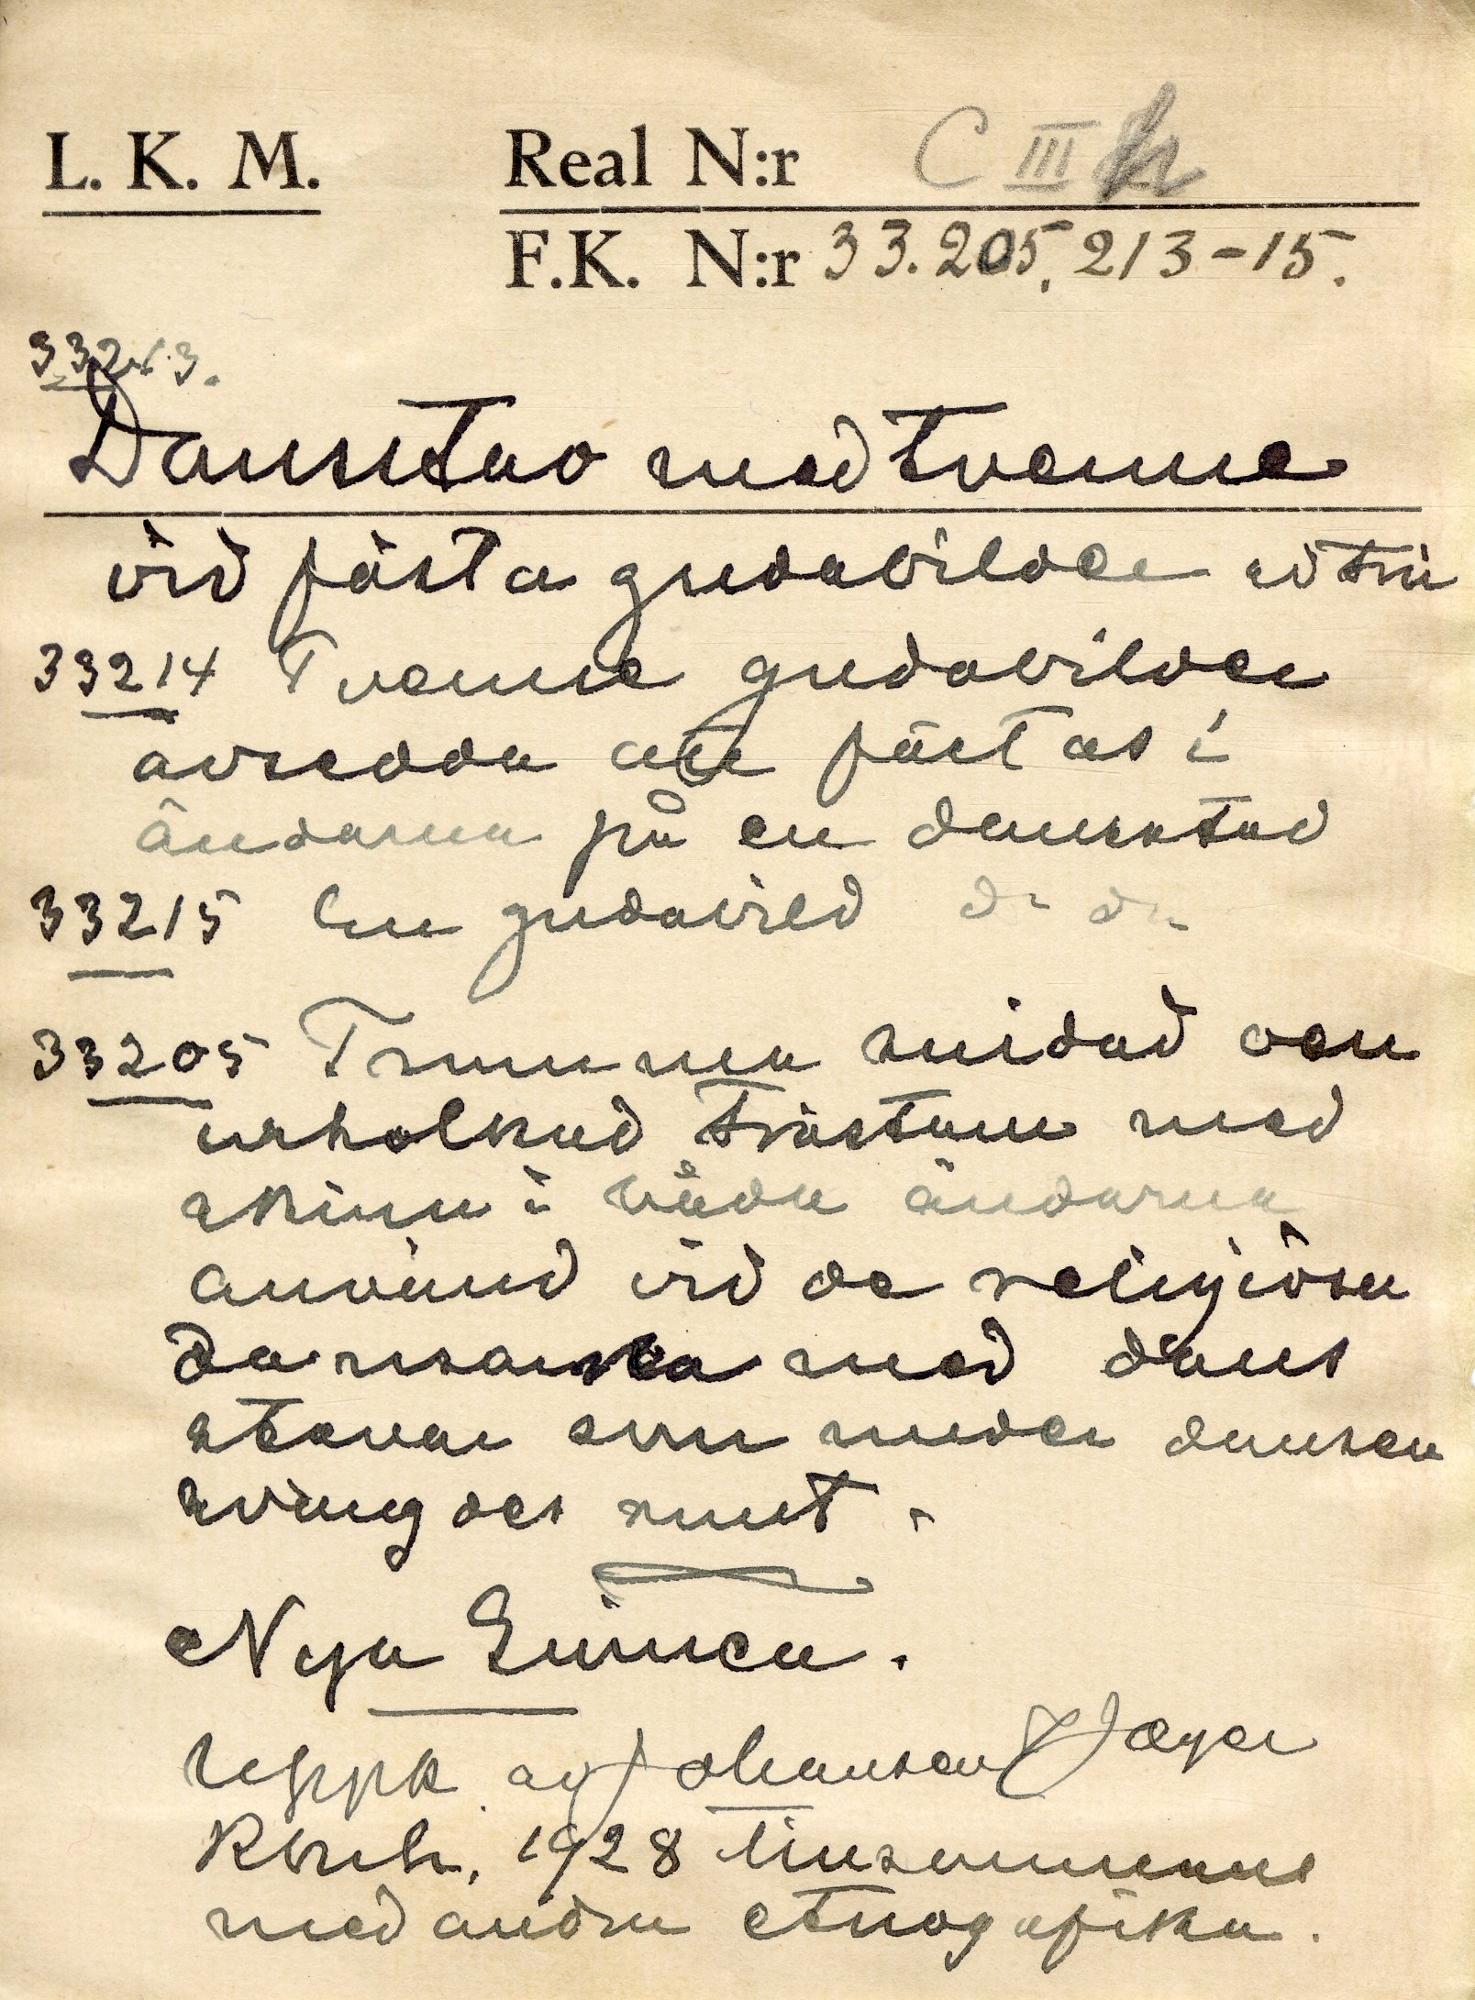 L. K. M. Real N:r C III h
F.K. N:r 33.205, 213-15.
33213.
Dansstav med tvenne
vid fästa gudabilder av trä
33214 Tvenne gudabilder
avsedda att fästas i
ändarna på en dansstav
33215 En gudabild d:o d:o
33205 Trumma snidad ven
urholkad trästam med
skinn i båda ändarna
använd vid de religiösa
danserna med dans
stavar som under dansen
svängdes runt.
Nya Guinea.
Uppk. av Johansen Jæger
Kbnh. 1928 tillsammans
med andra etnografika.